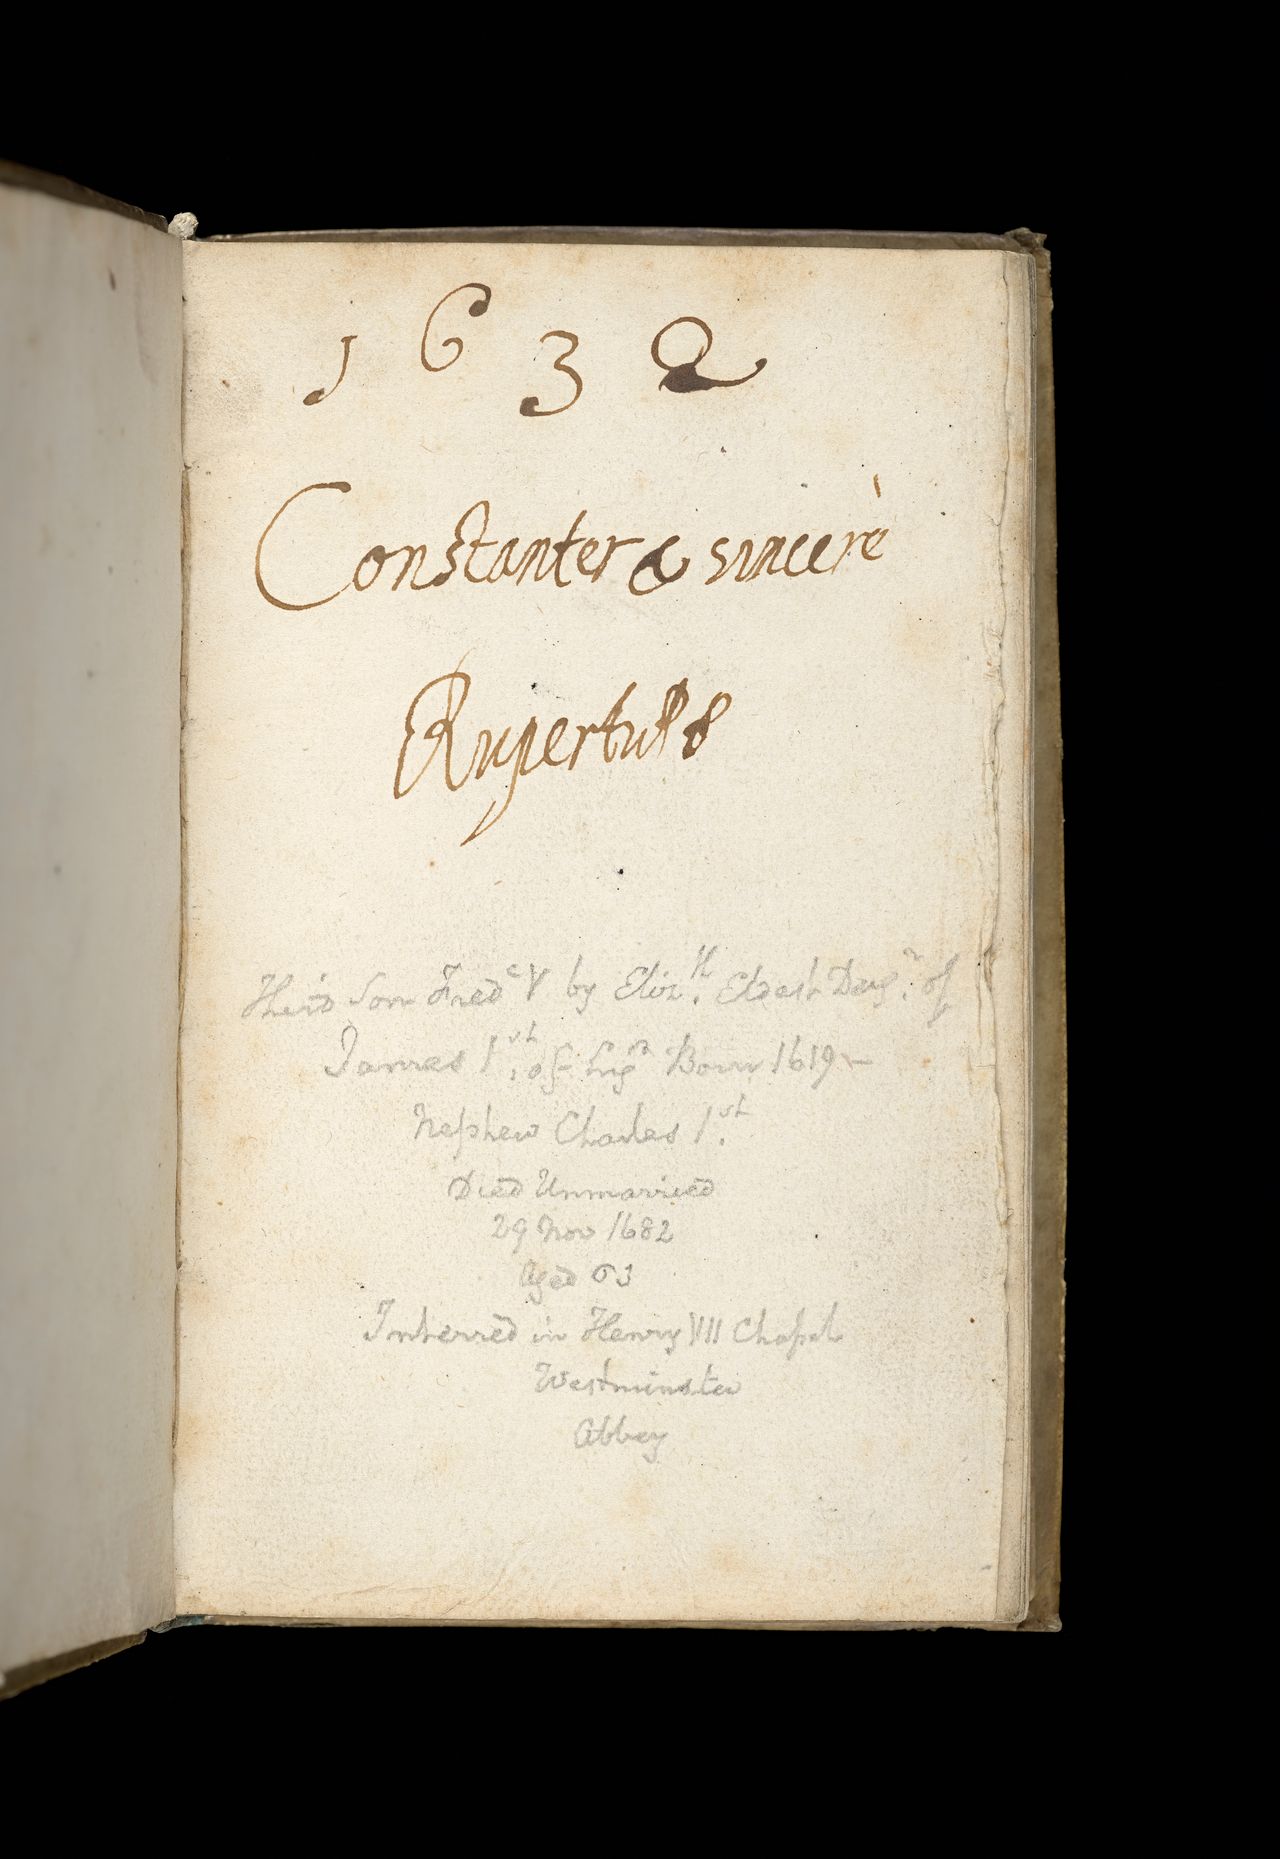 1632
Constanter & sincerè
Rupertus
Third Son Fredc V by Elizth. Eldest Daugr. of
James 1st. of Engd Born 1619 –
Nephew Charles 1st.
Died Unmarried
29 Nov 1682
Aged 63
Interred in Henry VIII Chapel
Westminster
Abbey